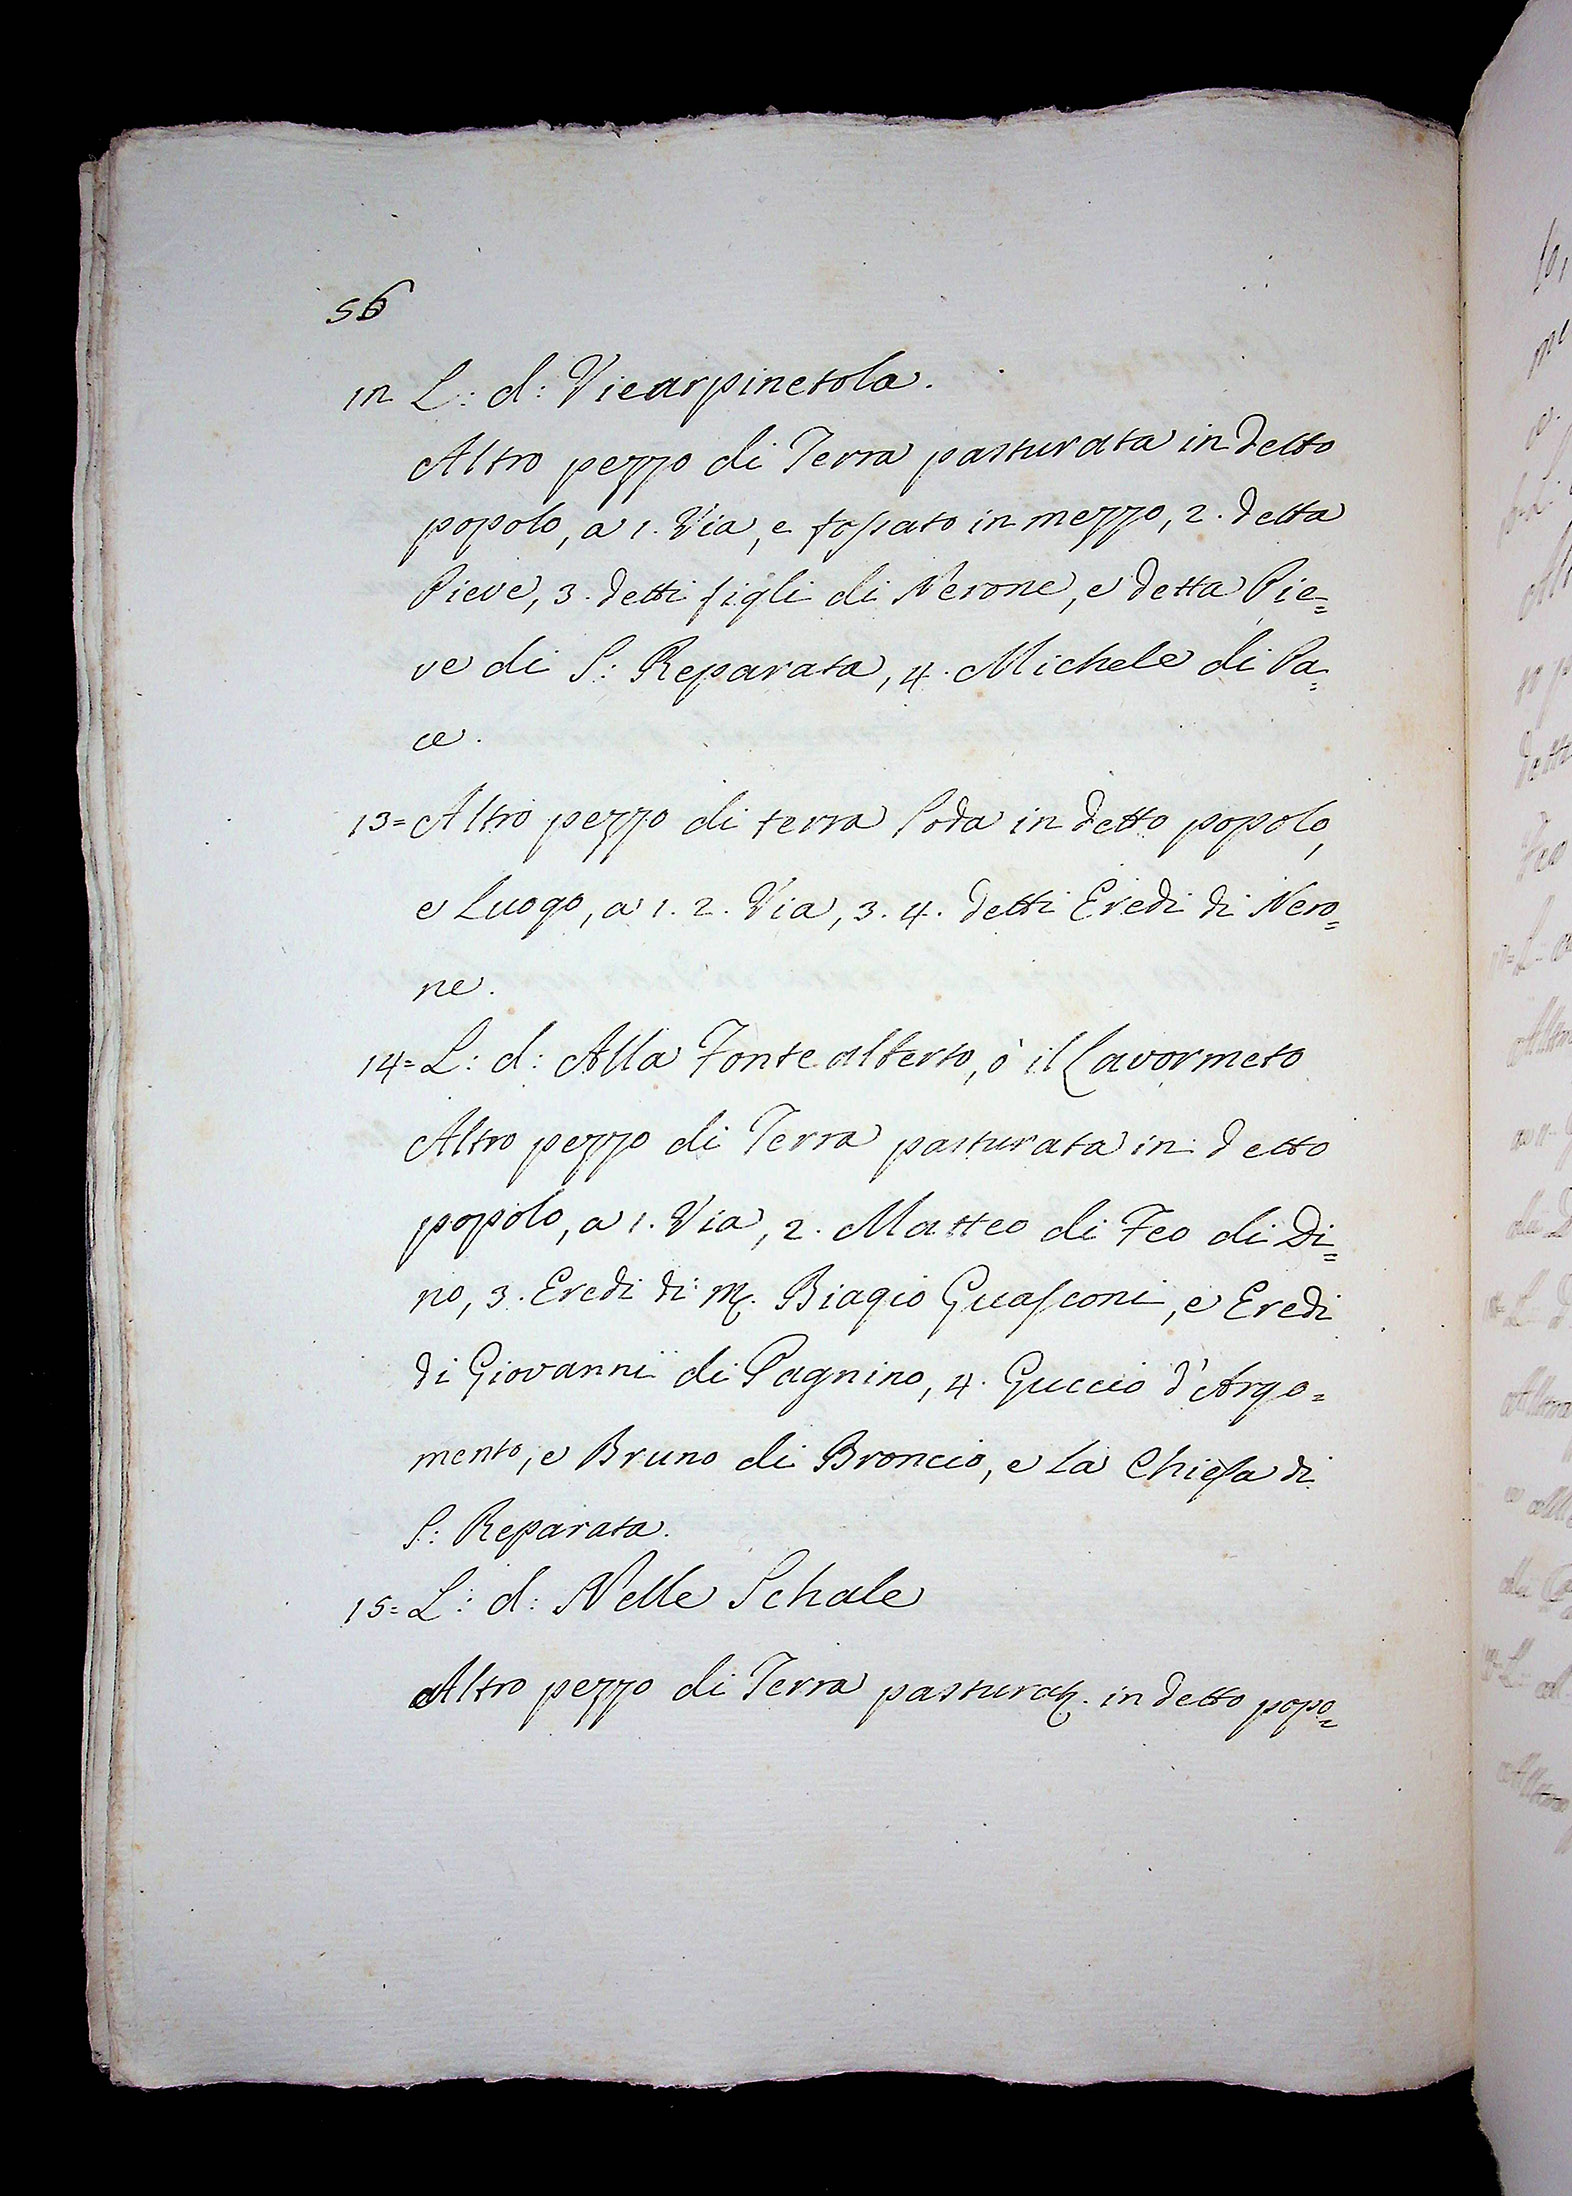 56
in L: d: Viearpinetola.
Altro pezzo di Terra pasturata in detto
popolo, a 1. Via, e fossato in mezzo, 2. detta
Pieve, 3. detti figli di Nerone, e detta Pie=
ve di S: Reparata, 4. Michele di Pa=
ce.
13= Altro pezzo di terra Soda in detto popolo,
e Luogo, a 1. 2. Via, 3. 4. detti Eredi di Nero=
ne.
14= L: d: Alla Fonte alberto, ò il Cavormeto
Altro pezzo di Terra pasturata in detto
popolo, a 1. Via, 2. Matteo di Feo di Di=
no, 3. Eredi di M. Biagio Guasconi, e Eredi
di Giovanni di Pagnino, 4. Guccio d'Argo=
mento, e Bruno di Broncio, e la Chiesa di
S: Reparata.
15= L: d: Nelle Schale
Altro pezzo di Terra pasturat. in detto popo=